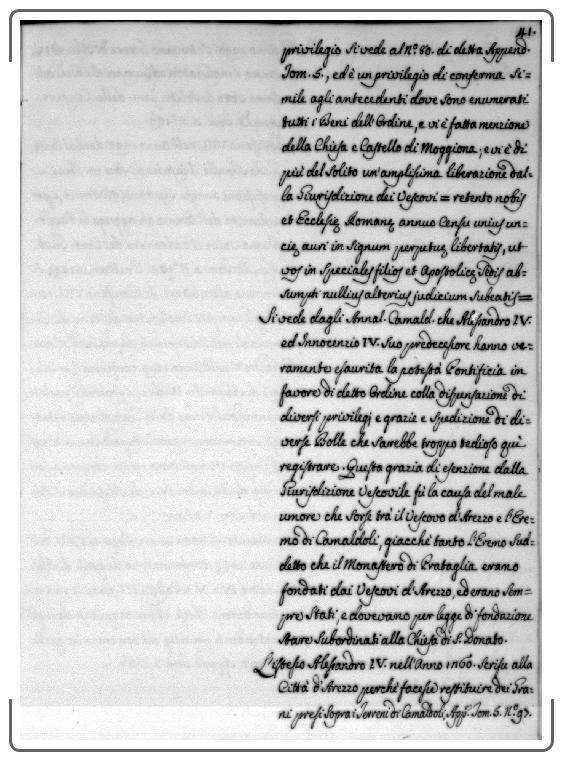 41.
privilegio si vede al N.º 80. di detta Append.
Tom. 5., ed è un privilegio di conferma si=
mile agli antecedenti dove sono enumerati
tutti i Beni dell'Ordine, e vi è fatta menzione
della Chiesa e Castello di Moggiona; e vi è di
più del solito un'amplissima liberazione dal-
la Giurisdizione dei Vescovi = retento nobis
et Ecclesię Romanę annuo Censu unius un-
cię auri in signum perpetuę libertatis, ut
vos in speciales filios et Apostolicę Sedis ab-
sumpti nullius alterius judicium subeatis=
Si vede dagli Annal. Camald. che Alessandro IV.
ed Innocenzio IV. suo predecessore hanno ve-
ramente esaurita la potestà Pontificia in
favore di detto Ordine colla dispensazione di
diversi privilegj e grazie e spedizione di di-
verse Bolle che sarebbe troppo tedioso quì
registrare. Questa grazia di esenzione dalla
Giurisdizione Vescovile fù la causa del male
umore che sorse trà il Vescovo d'Arezzo e l'Ere=
mo di Camaldoli, giacchè tanto l'Eremo sud=
detto che il Monastero di Prataglia erano
fondati dai Vescovi d'Arezzo, ed erano sem=
pre stati, e dovevano per legge di fondazione
stare subordinati alla Chiesa di S. Donato.
L'istesso Alessandro IV. nell'Anno 1260. scrisse alla
Città d'Arezzo perchè facesse restituire dei Gra-
ni presi sopra i Terreni di Camaldoli, App. Tom. 5. N.º 97.